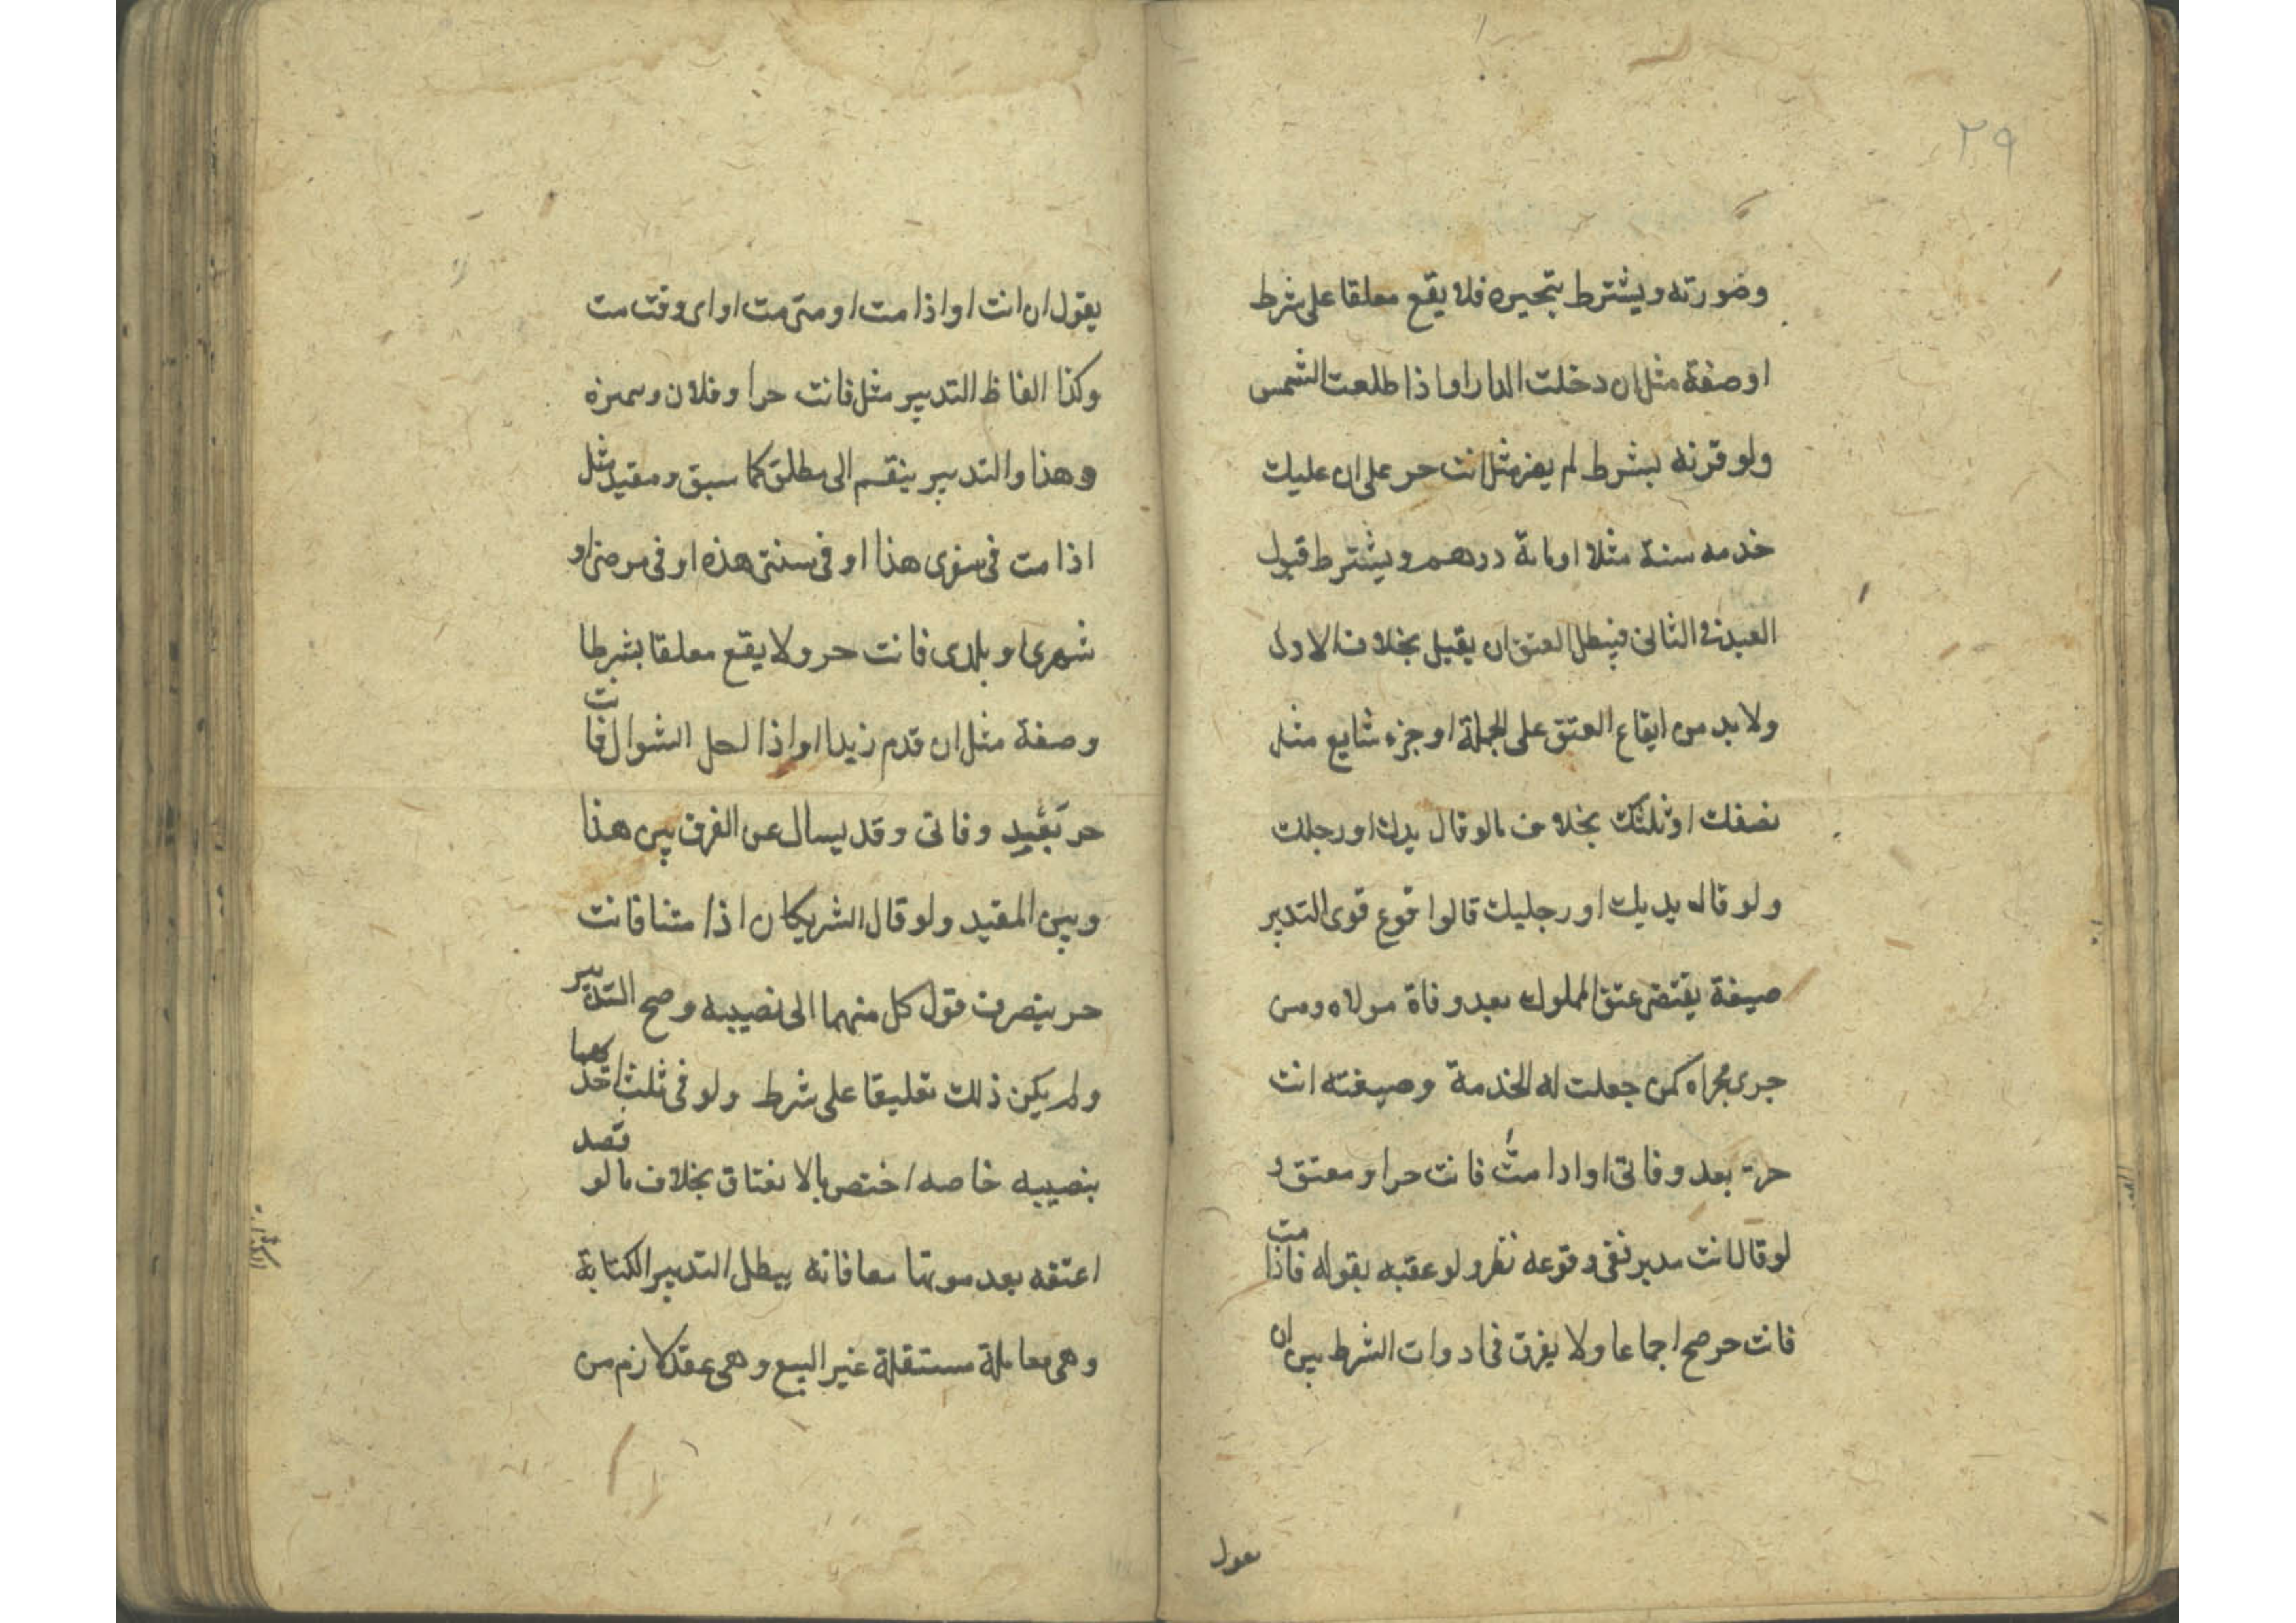 ٢٩
وضورته ويشترط تنجيزه فلا يقع معلقا على شرط
او صفة مثل ان دخلت الدار او اذا طلعت الشمس
ولو قرنه بشرط لم يضر مثل انت حر على ان عليك
خدمه سنة مثلا او ماىة درهم ويشترط قبول
العبد في الثاني فيبطل العتق ان يقبل بخلاف الاول
ولا بد من ايقاع العتق على الجملة او جزء شايع مثل
نصفك او ثلثك بخلاف ما لو قال يدك او رجلك
ولو قال يديك او رجليك قالوا قوع قوى التدبير
صيغة يقتضى عتق المملوك بعد وفاة مولاه ومن
جرى مجراه كمن جعلت له الخدمة وصيغته انت
حرة بعد وفاتى او ادا متُّ فانت حر او معتق و
لو قال انت مدبر نفى وقوعه نظر ولو عقبه بقوله فاذا مت
فانت حر صح اجماعا ولا يفرق فى ادوات الشرط بين ان
يقول
يقول ان انت او اذا مت او متى مت او اى وقت مت
وكذا الفاظ التدبير مثل فانت حر او فلان ويميزه
وهذا والتدبير ينقسم الى مطلق كما سبق ومقيد مثل
اذا مت فى سفرى هذا او فى سنتى هذه او فى مرضى او
شهرى او بلدى فانت حر ولا يقع معلقا بشرط ا
وصفة مثل ان قدم زيد او اذا احل الشوال فانت
حر بَعْيد وفاتى وقد يسال عن الفرق بين هذا
وبين المقيد ولو قال الشريكان اذا متنا فانت
حر ينصرف قول كل منهما الى نصيبه وصح التدبير
ولم يكن ذلك تعليقا على شرط ولو فى ثلث احدهما
بنصيبه خاصه اختص بالانعتاق بخلاف ما لو قصد
اعتقه بعد موتها معا فانه يبطل التدبير الكتابة
وهى معاملة مستقلة غير البيع وهى عقد لازم من